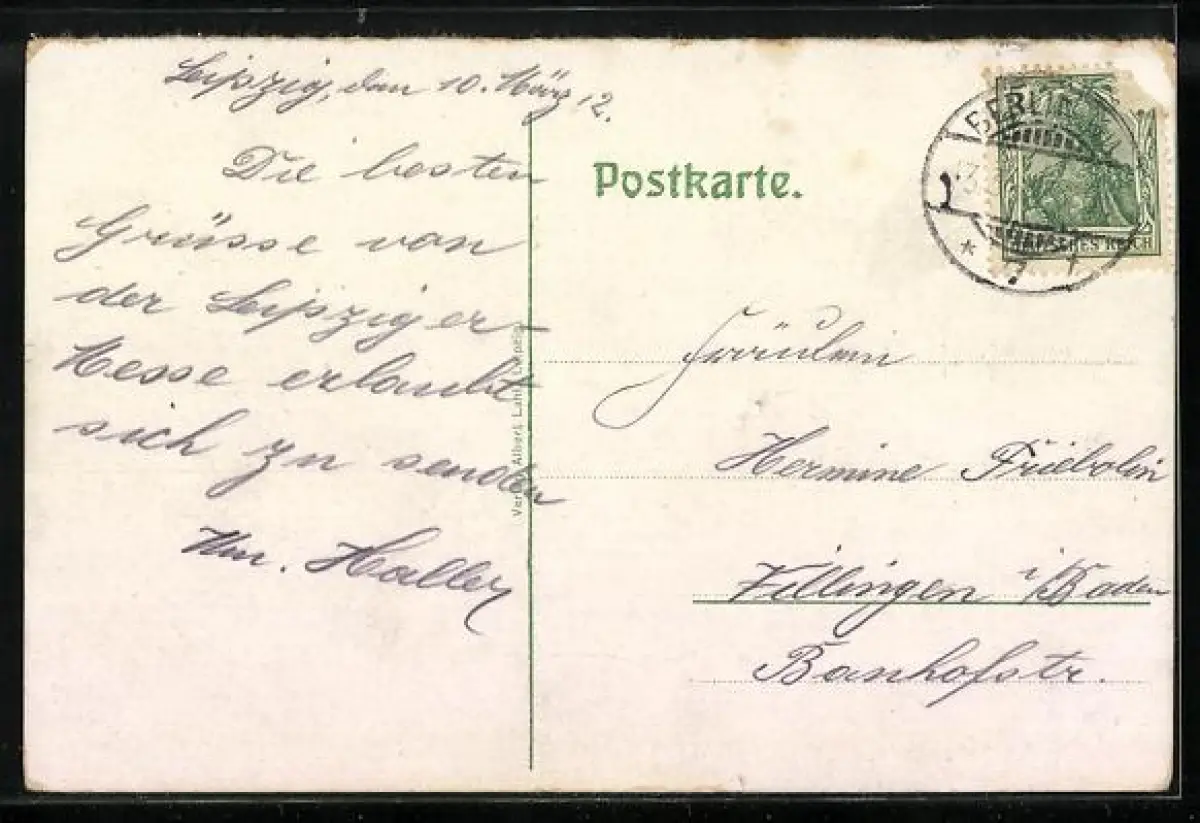 Leipzig, den 10. März 12.
Die besten
Grüsse von
der Leipziger
Messe erlaubt
sich zu senden
Wm. Haller
Postkarte.
BERLIN
DEUTSCHES REICH
Fräulein
Hermine Friebolin
Villingen i/Baden
Banhofstr.
Verlag Albert